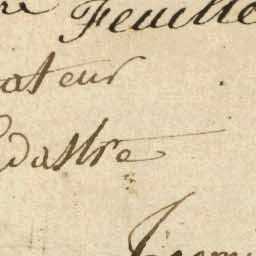 re Feuille
ateur
dastre